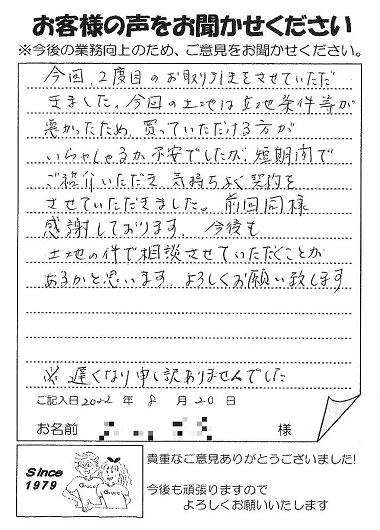 お客様の声をお聞かせください
※今後の業務向上のため、ご意見をお聞かせください。
今回、2度目のお取り引きをさせていただ
きました。今回の土地は立地条件等が
悪かったため、買っていただける方が
いらっしゃるか不安でしたが、短期間で
ご紹介いただき、気持ちよく契約を
させていただきました。前回同様
感謝しております。今後も
土地の件で相談させていただくことが
あるかと思います。よろしくお願い致します
※遅くなり申し訳ありませんでした
ご記入日2022年8月20日
お名前 様
Since
1979
Grace
Grace
貴重なご意見ありがとうございました!
今後も頑張りますので
よろしくお願いいたします